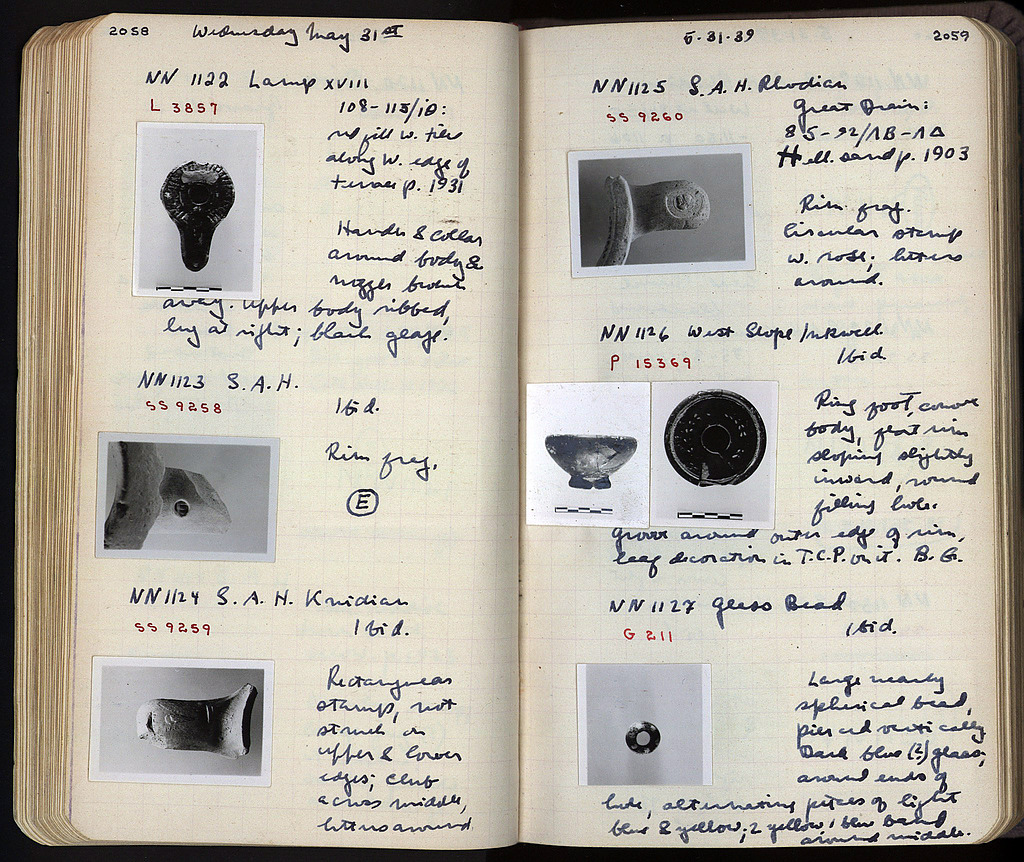 2058 Wednesday May 31st
NN 1122 Lamp XVIII
L 3857
108-115/ΙΘ:
rd fill w. tiles
along W. edge of
terrace p. 1931
Handle & collar
around body &
nozzle broken
away. Upper body ribbed,
lug at right; black glaze.
NN 1123 S.A.H.
SS 9258
Ibid.
Rim frag.
E
NN 1124 S.A.H. Knidian
SS 9259
Ibid.
Rectangular
stamp, not
struck on
upper & lower
edges; club
across middle,
letters around
5-31-39 2059
NN 1125 S.A.H. Rhodian
SS 9260
Great Drain:
85-92/ΛΒ-ΛΔ
Hell. sand p. 1903
Rim frag.
Circular stamp
w. rose; letters
around.
NN 1126 West Slope Inkwell
P 15369
Ibid.
Ring foot, convex
body, flat rim
sloping slightly
inward, round
filling hole.
Groove around outer edge of rim,
leaf decoration in T.C.P. on it. B.G.
NN 1127 Glass Bead
G 211
Ibid.
Large nearly
spherical bead,
pierced vertically
Dark blue (?) glass;
around ends of
hole, alternating pieces of light
blue & yellow; 2 yellow, 1 blue band
around middle.